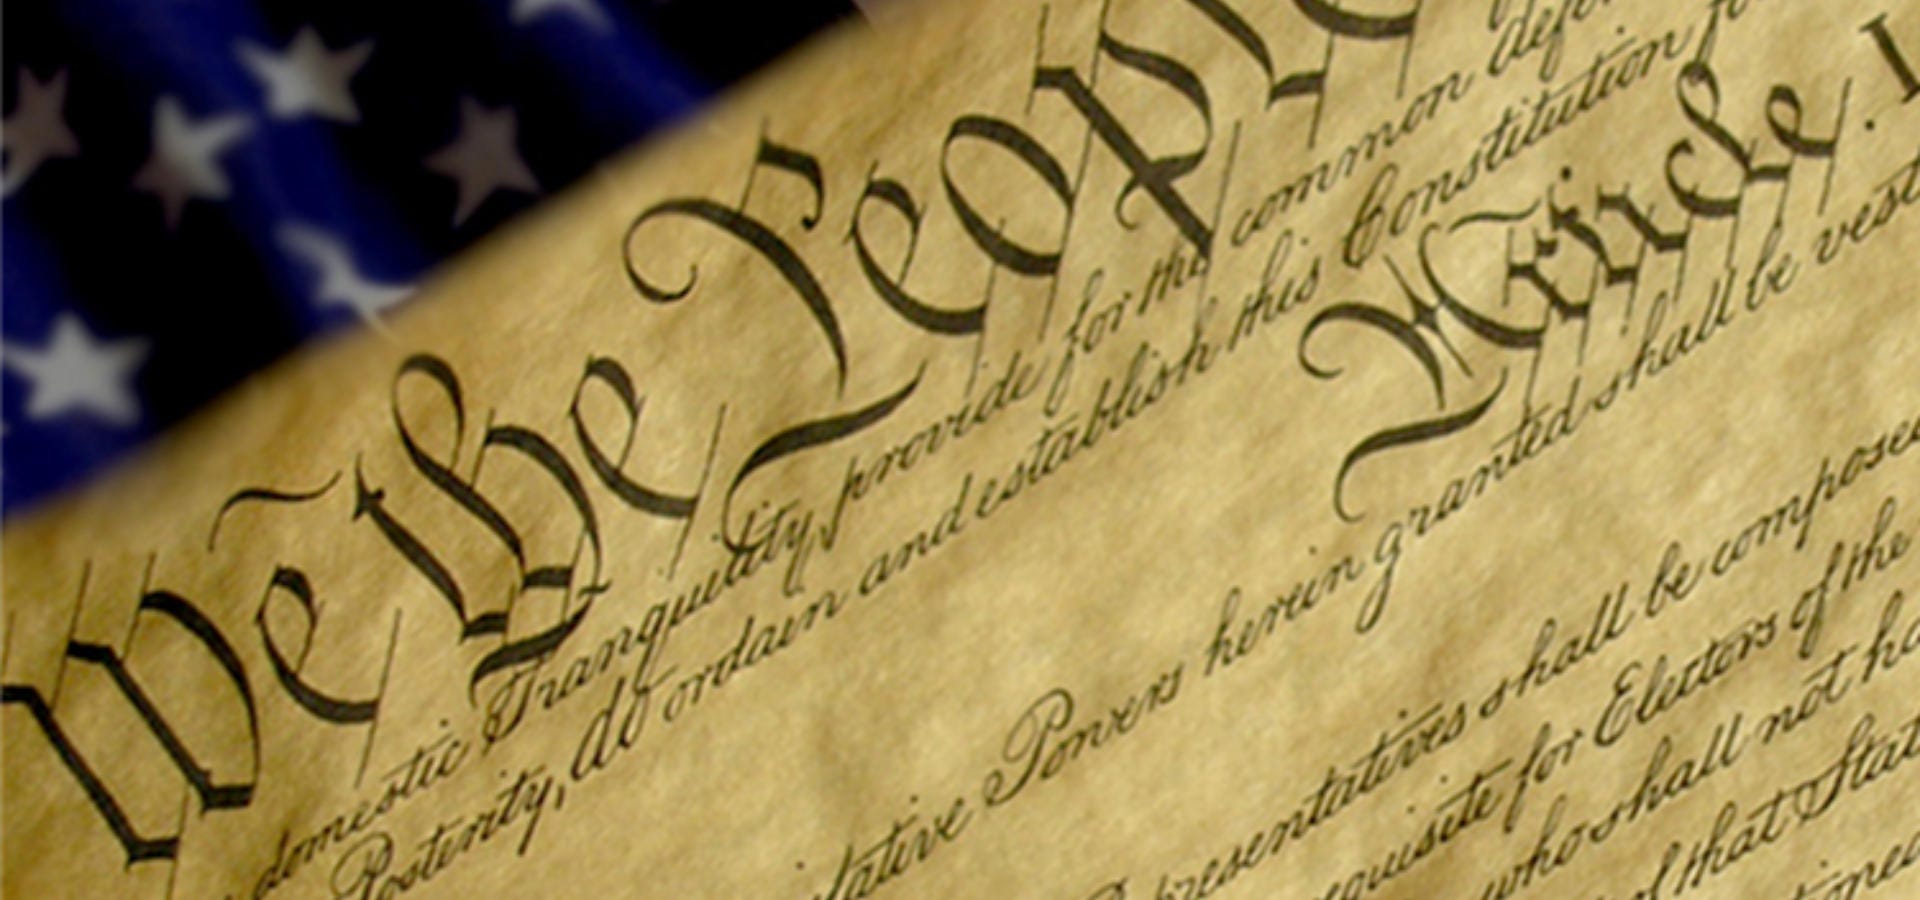 We the People
domestic Tranquility, provide for the common defen
Posterity, do ordain and establish this Constitution for
Article. I
lative Powers herein granted shall be vest
presentatives shall be compose
requisite for Electors of the
who shall not ha
of that State
tioned